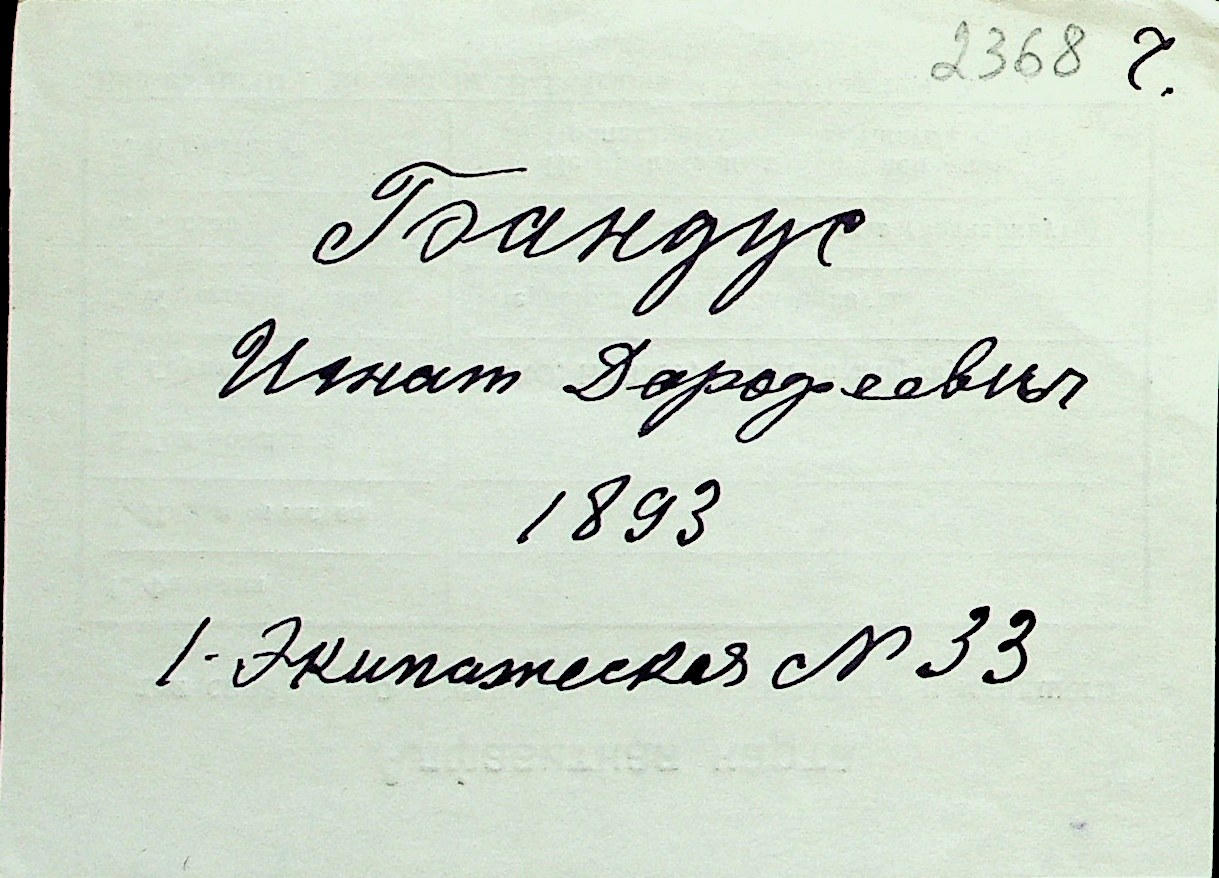 2368 ч.
Бандус
Игнат Дорофеевич
1893
1-Экипажеская № 33